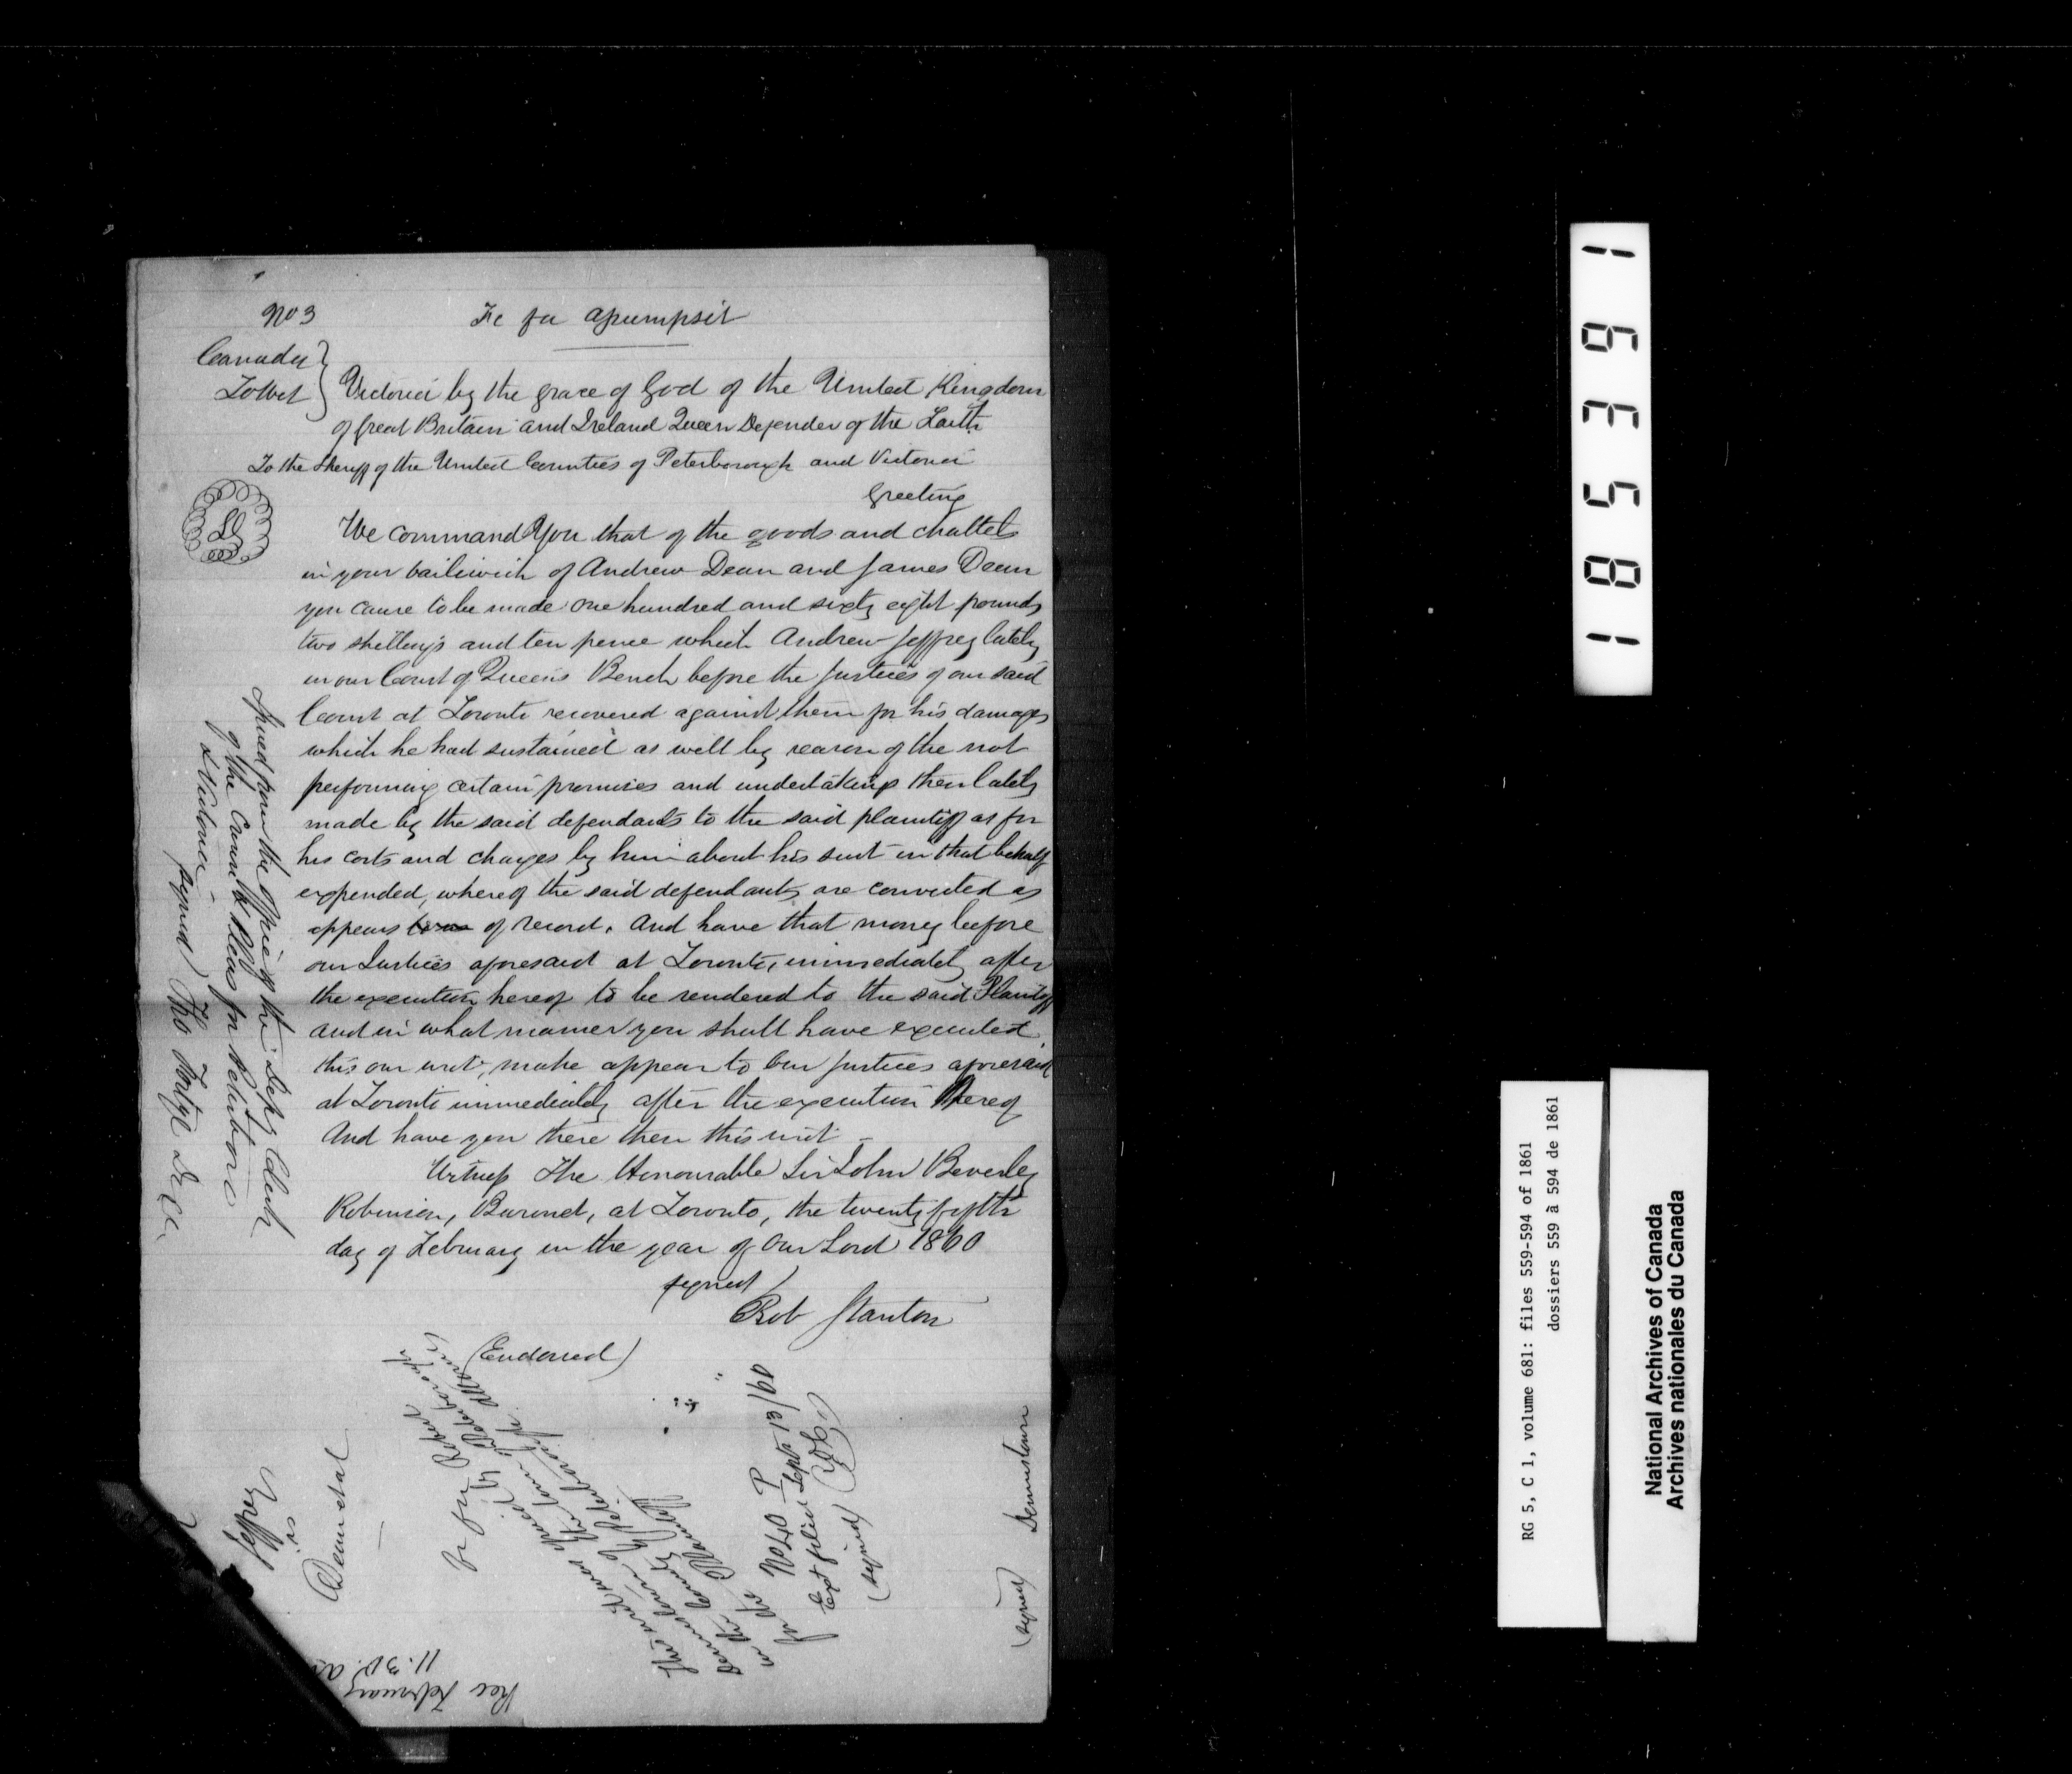 No 3
Fi fa assumpsit
Canada
To Wit
Victoria by the grace of God of the United Kingdom
of Great Britain and Ireland Queen Defender of the Faith
To the Sheriff of the United Counties of Peterborough and Victoria
Greeting
LS
We command You that of the goods and chattels
in your bailiwick of Andrew Dean and James Dean
you cause to be made one hundred and sixty eight pounds
two shillings and ten pence which Andrew Jeffrey lately
in our Court of Queen's Bench before the Justices of our said
Court at Toronto recovered against them for his damages
which he had sustained as well by reason of the not
performing certain promises and undertakings then lately
made by the said defendants to the said plaintiff as for
his costs and charges by him about his suit in that behalf
expended, whereof the said defendants are convicted as
appears of record. And have that money before
our Justices aforesaid at Toronto, immediately after
the execution hereof to be rendered to the said Plaintiff
and in what manner you shall have executed
this our writ, make appear to our Justices aforesaid
at Toronto immediately after the execution thereof
And have you there then this writ
Witness The Honourable Sir John Beverley
Robinson, Baronet, at Toronto, the twenty fifth
day of February in the year of Our Lord 1860
signed)
Rob Stanton
Issued from the Office of the Depy Clerk
of the Crown & Pleas for Peterboro
& Victoria
signed) Tho Fortye D.C.C.
(Endorsed)
Jeffrey
vs
Dean et al
fi fa
This writ was issued by Robert
Dennistoun of the Town of Peterborough
in the County of Peterborough Attorney
for the Plaintiff
(signed) Dennistoun
No 40 P
Ext filed Sept 13/60
(signed)
Rec February
11.30. a
RG 5, C 1, volume 681: files 559-594 of 1861
dossiers 559 à 594 de 1861
National Archives of Canada
Archives nationales du Canada
185391